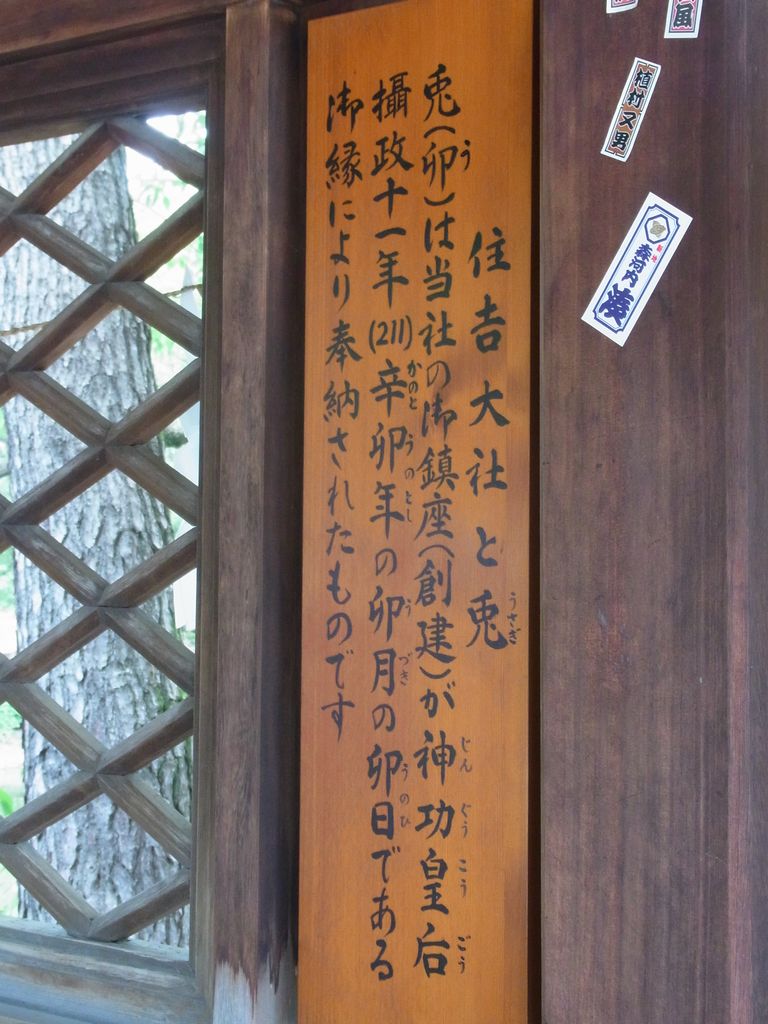 住吉大社と兎
うさぎ
兎(卯)は当社の御鎮座(創建)が神功皇后
う
じんぐうこうごう
攝政十一年(211)辛卯年の卯月の卯日である
かのとうのとし
うづき
うのひ
御縁により奉納されたものです
植村又男
奉河内
湊